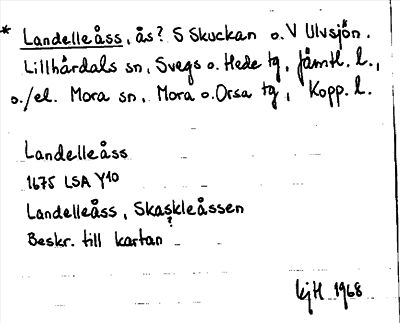 * Landelleåss, ås? S Skuckan o. V Ulvsjön.
Lillhärdals sn, Svegs o. Hede tg, Jämtl. l.,
o./el. Mora sn, Mora o. Orsa tg, Kopp. l.
Landelleåss
1675 LSA Y10
Landelleåss, Skaskleåssen
?
Beskr. till kartan
LjH 1968